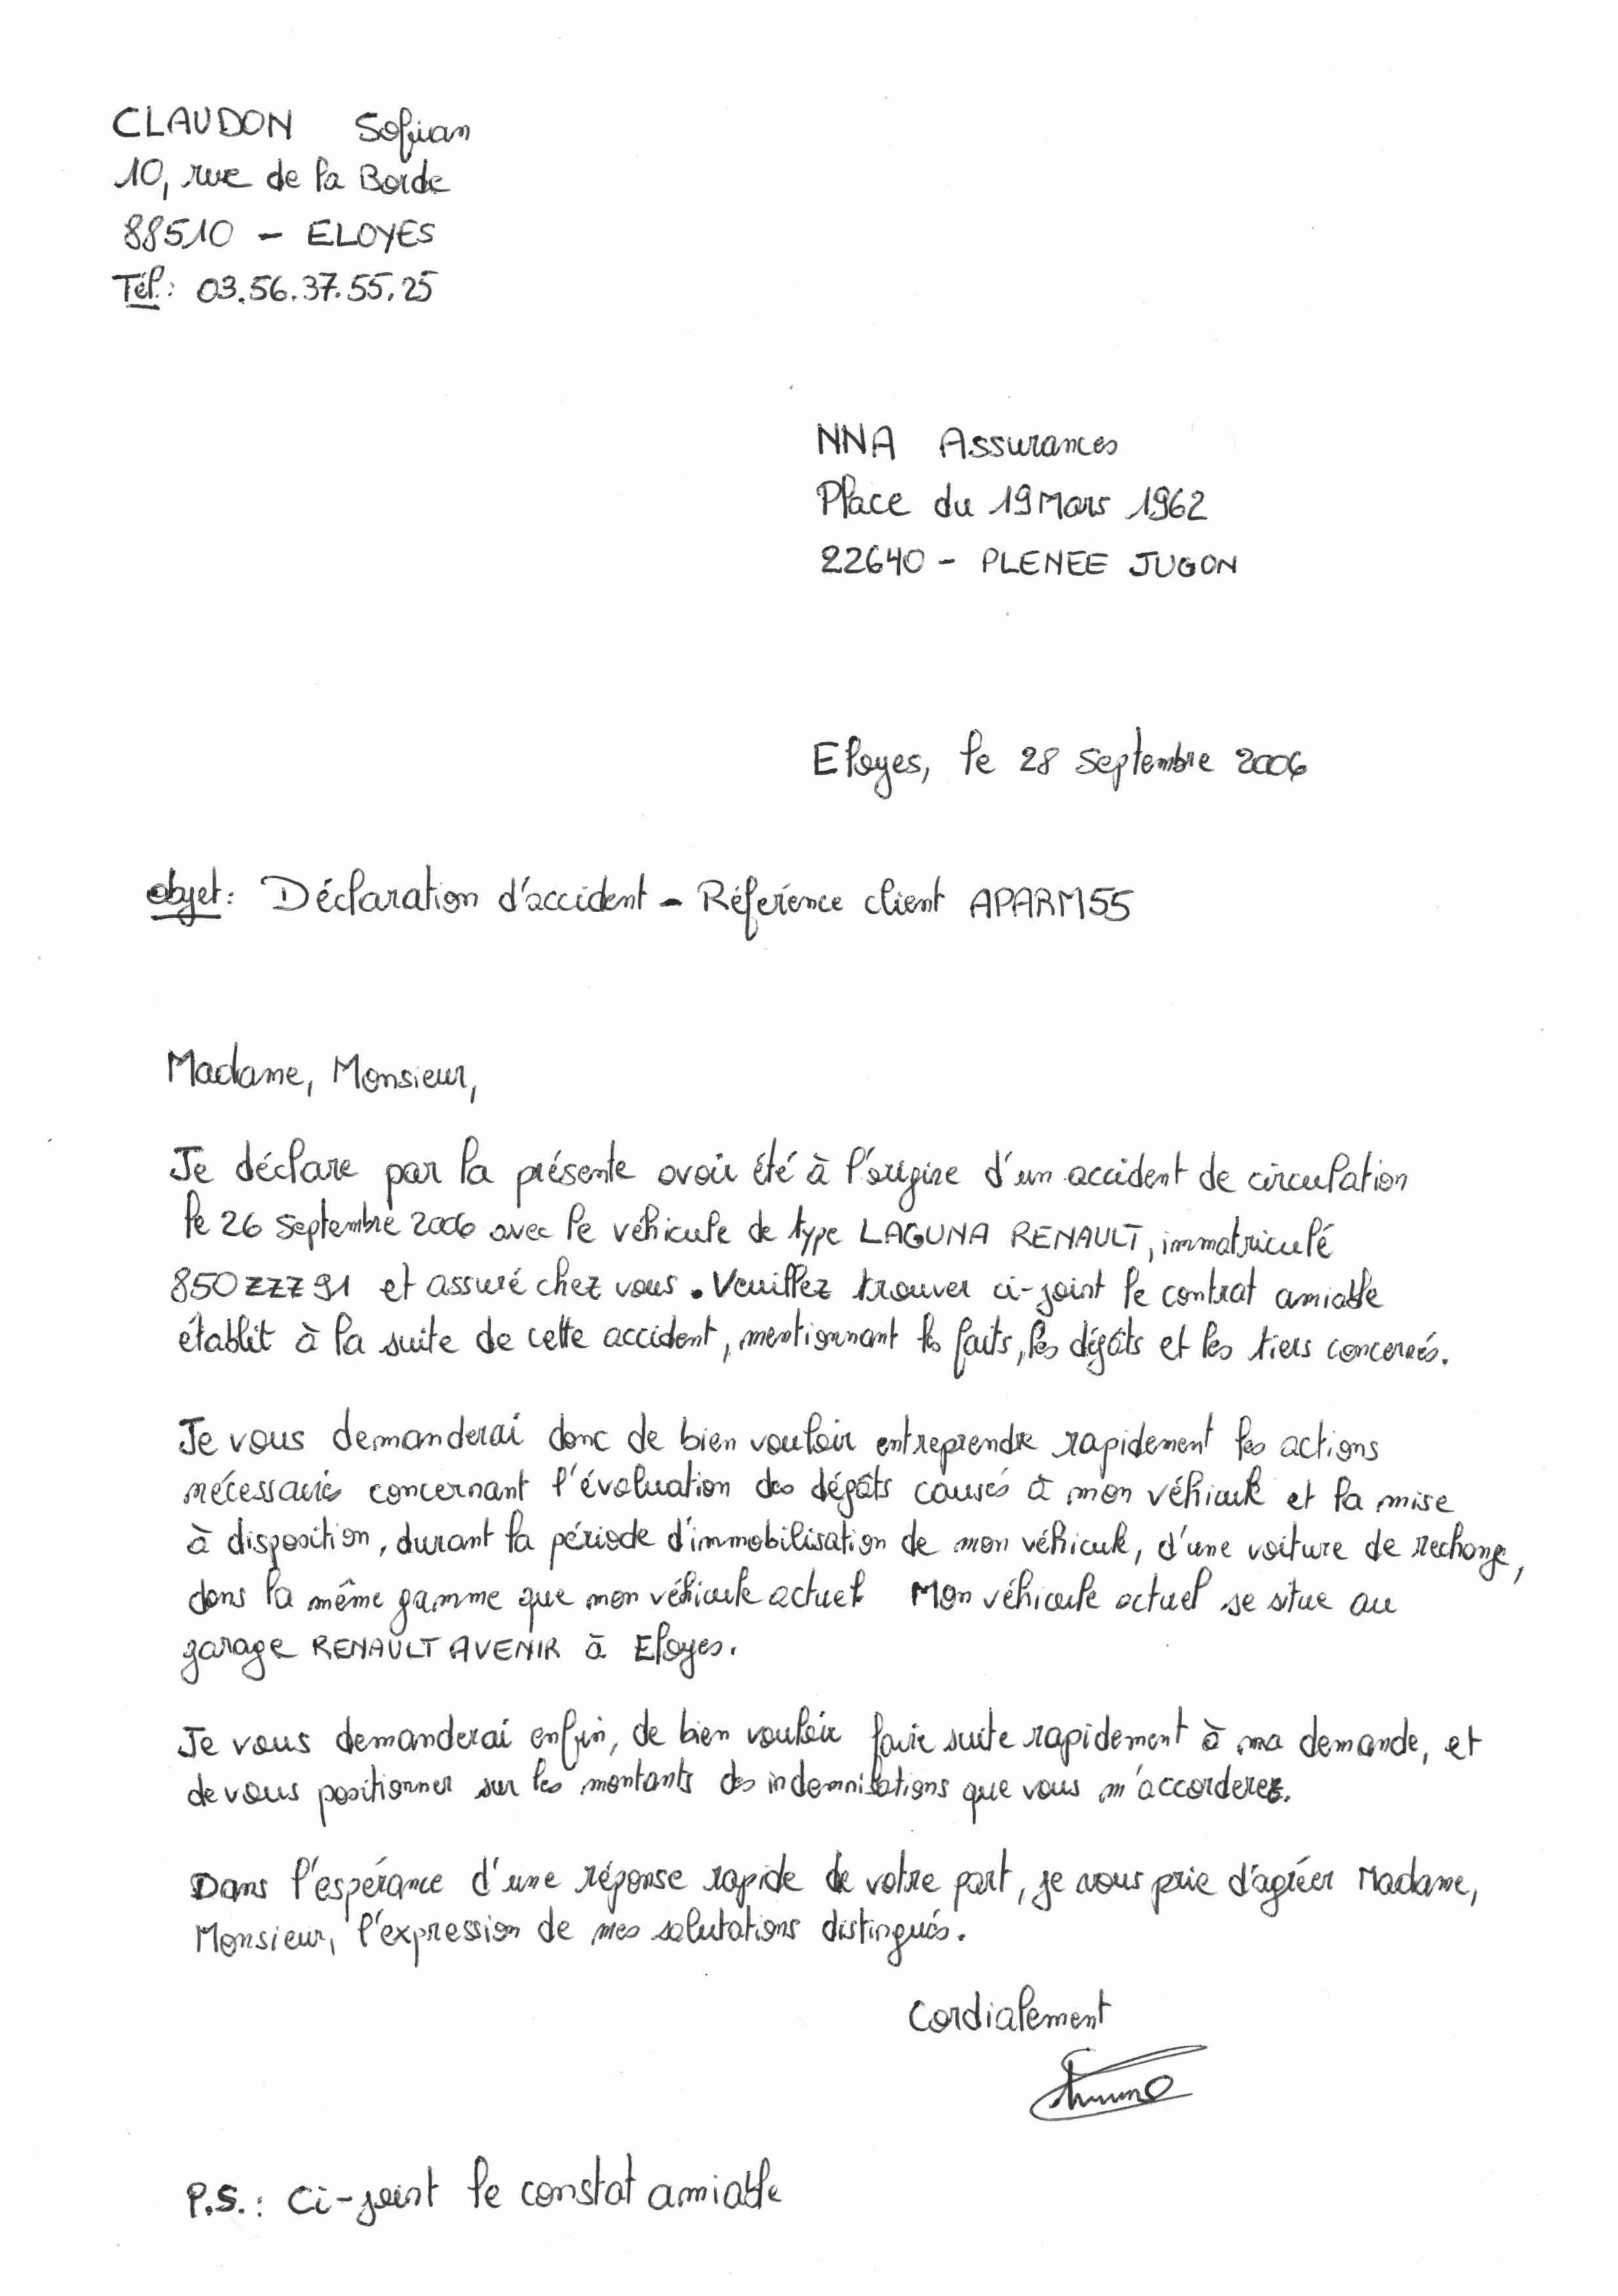 CLAUDON Sofian
10, rue de la Borde
88510 - ELOYES
Tél.: 03.56.37.55.25
NNA Assurances
Place du 19 Mars 1962
22640 - PLENEE JUGON
Eloyes, le 28 septembre 2006
objet: Déclaration d'accident - Référence client APARM55
Madame, Monsieur,
Je déclare par la présente avoir été à l'origine d'un accident de circulation
le 26 septembre 2006 avec le véhicule de type LAGUNA RENAULT, immatriculé
850ZZZ91 et assuré chez vous. Veuillez trouver ci-joint le contrat amiable
établit à la suite de cette accident, mentionnant les faits, les dégâts et les tiers concernés.
Je vous demanderai donc de bien vouloir entreprendre rapidement les actions
nécessaires concernant l'évaluation des dégâts causés à mon véhicule et la mise
à disposition, durant la période d'immobilisation de mon véhicule, d'une voiture de rechange,
dans la même gamme que mon véhicule actuel Mon véhicule actuel se situe au
garage RENAULT AVENIR à Eloyes.
Je vous demanderai enfin, de bien vouloir faire suite rapidement à ma demande, et
de vous positionner sur les montants des indemnisations que vous m'accorderez.
Dans l'espérance d'une réponse rapide de votre part, je vous prie d'agréer Madame,
Monsieur, l'expression de mes salutations distingués.
Cordialement
P.S.: Ci-joint le constat amiable